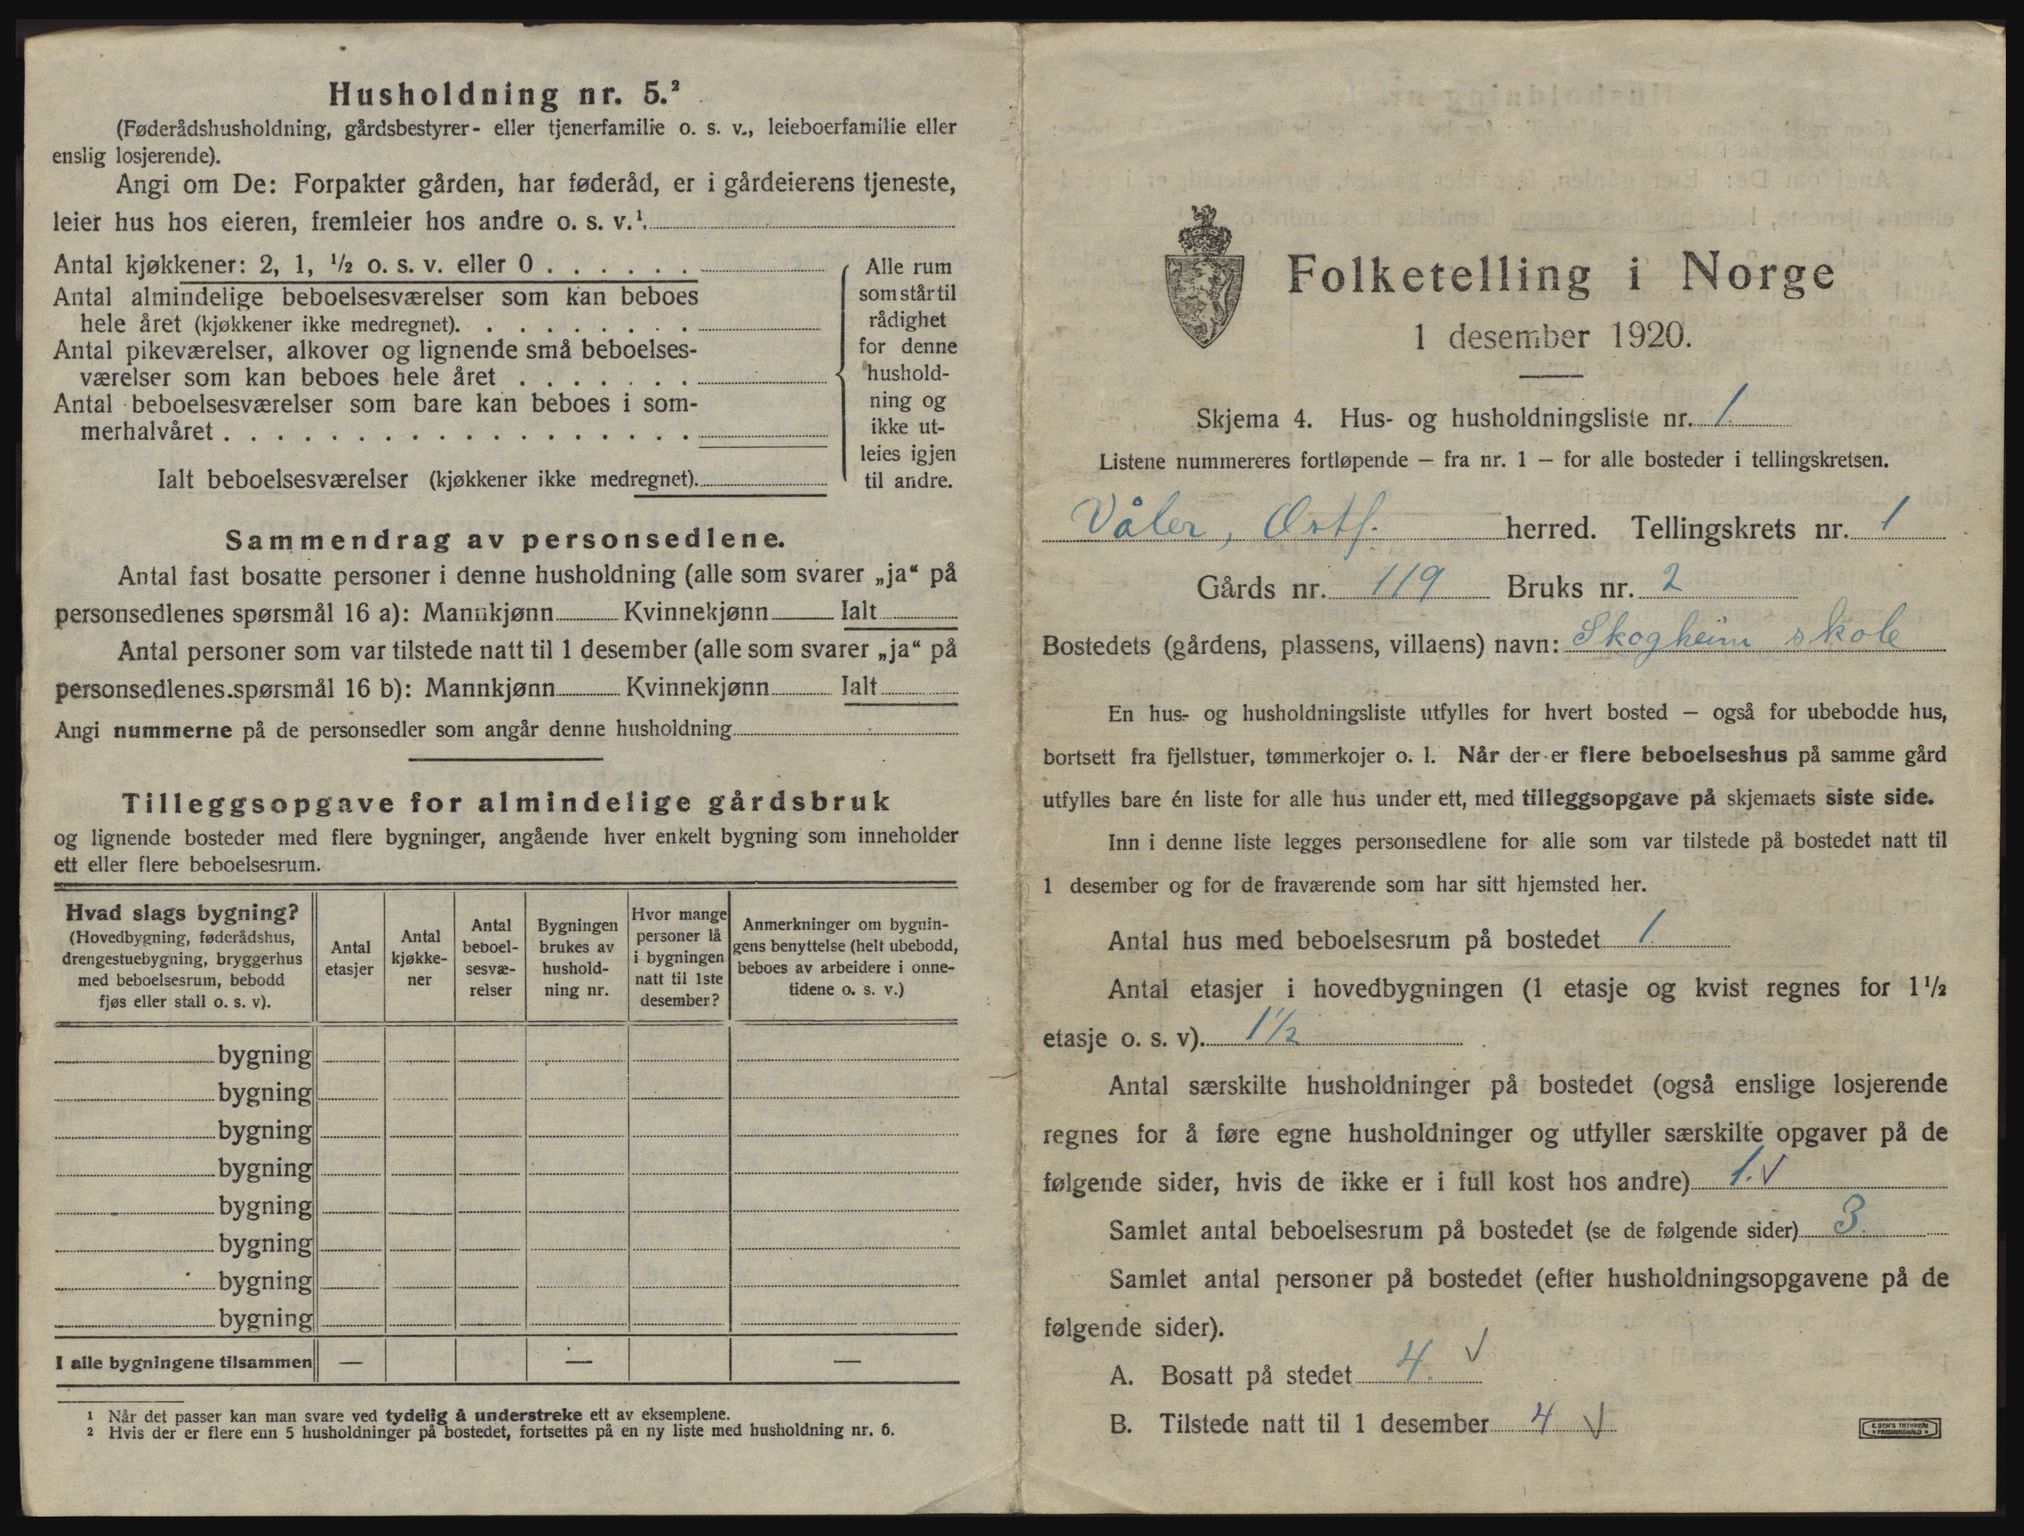 Husholdning nr. 5.²
(Føderådshusholdning, gårdsbestyrer- eller tjenerfamilie o. s. v., leieboerfamilie eller
enslig losjerende).
Angi om De: Forpakter gården, har føderåd, er i gårdeierens tjeneste,
leier hus hos eieren, fremleier hos andre o. s. v.¹.
Antal kjøkkener: 2, 1, ½ o. s. v. eller 0 . . . . . .
Antal almindelige beboelsesværelser som kan beboes
hele året (kjøkkener ikke medregnet). . . . . . . . .
Antal pikeværelser, alkover og lignende små beboelses-
værelser som kan beboes hele året . . . . . . .
Antal beboelsesværelser som bare kan beboes i som-
merhalvåret . . . . . . . . . . . . . . . . . .
Ialt beboelsesværelser (kjøkkener ikke medregnet).
Alle rum
som står til
rådighet
for denne
hushold-
ning og
ikke ut-
leies igjen
til andre.
Sammendrag av personsedlene.
Antal fast bosatte personer i denne husholdning (alle som svarer „ja“ på
personsedlenes spørsmål 16 a): Mannkjønn Kvinnekjønn Ialt
Antal personer som var tilstede natt til 1 desember (alle som svarer „ja“ på
personsedlenes spørsmål 16 b): Mannkjønn Kvinnekjønn Ialt
Angi nummerne på de personsedler som angår denne husholdning
Tilleggsopgave for almindelige gårdsbruk
og lignende bosteder med flere bygninger, angående hver enkelt bygning som inneholder
ett eller flere beboelsesrum.
Hvad slags bygning?
(Hovedbygning, føderådshus,
drengestuebygning, bryggerhus
med beboelsesrum, bebodd
fjøs eller stall o. s. v).
Antal
etasjer
Antal
kjøkke-
ner
Antal
beboel-
sesvæ-
relser
Bygningen
brukes av
hushold-
ning nr.
Hvor mange
personer lå
i bygningen
natt til 1ste
desember?
Anmerkninger om bygnin-
gens benyttelse (helt ubebodd,
beboes av arbeidere i onne-
tidene o. s. v.)
bygning
bygning
bygning
bygning
bygning
bygning
bygning
bygning
I alle bygningene tilsammen — — —
¹ Når det passer kan man svare ved tydelig å understreke ett av eksemplene.
² Hvis der er flere enn 5 husholdninger på bostedet, fortsettes på en ny liste med husholdning nr. 6.
Folketelling i Norge
1 desember 1920.
Skjema 4. Hus- og husholdningsliste nr. 1.
Listene nummereres fortløpende — fra nr. 1 — for alle bosteder i tellingskretsen.
Våler, Østf. herred. Tellingskrets nr. 1
Gårds nr. 119 Bruks nr. 2
Bostedets (gårdens, plassens, villaens) navn: Skogheim skole
En hus- og husholdningsliste utfylles for hvert bosted — også for ubebodde hus,
bortsett fra fjellstuer, tømmerkojer o. l. Når der er flere beboelseshus på samme gård
utfylles bare én liste for alle hus under ett, med tilleggsopgave på skjemaets siste side.
Inn i denne liste legges personsedlene for alle som var tilstede på bostedet natt til
1 desember og for de fraværende som har sitt hjemsted her.
Antal hus med beboelsesrum på bostedet 1.
Antal etasjer i hovedbygningen (1 etasje og kvist regnes for 1½
etasje o. s. v). 1½
Antal særskilte husholdninger på bostedet (også enslige losjerende
regnes for å føre egne husholdninger og utfyller særskilte opgaver på de
følgende sider, hvis de ikke er i full kost hos andre) 1. √
Samlet antal beboelsesrum på bostedet (se de følgende sider) 3.
Samlet antal personer på bostedet (efter husholdningsopgavene på de
følgende sider).
A. Bosatt på stedet 4. √
B. Tilstede natt til 1 desember 4 √
E. SEM'S TRYKKERI
FREDRIKSHALD